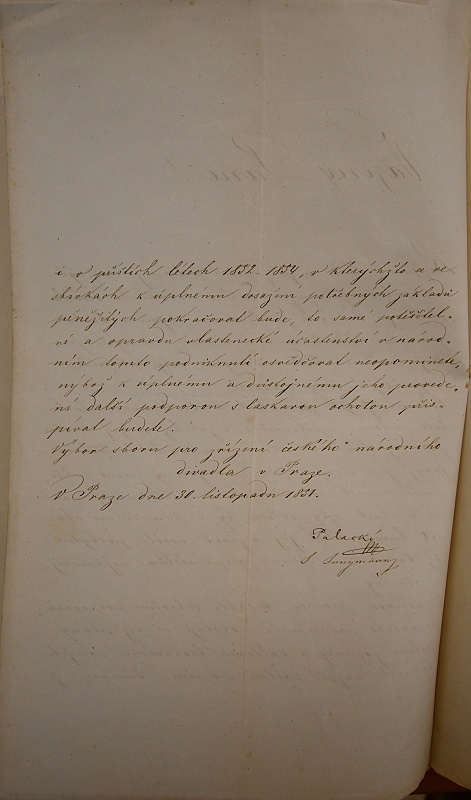 i v příštích létech 1852-1854, v kterýchžto u ve
sbírkách k úplnému dosažení potřebných základů
peněžitých pokračovat bude, to samé potěšitel-
né a opravdu vlastenecké účastenství v národ-
ním tomto podniknutí osvědčovat neopominete,
nýbrž k úplnému a důstojnému jeho provede-
ní další podporou s laskavou ochotou přis-
pívat budete.
Výbor sboru pro zřízení českého národního
divadla v Praze.
V Praze dne 30. listopadu 1851.
Palacký